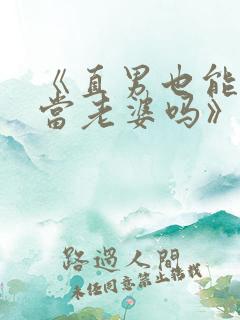 《直男也能
當老婆吗》
路過人間
未经同意禁止搭载